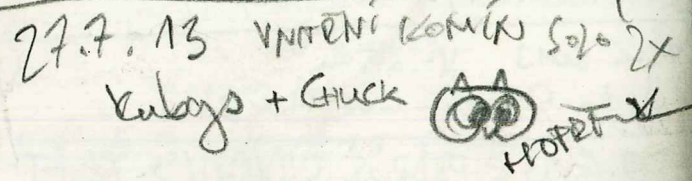 27.7.13 VNITŘNÍ KOMÍN SOLO 2X
Kubajs + CHUCK